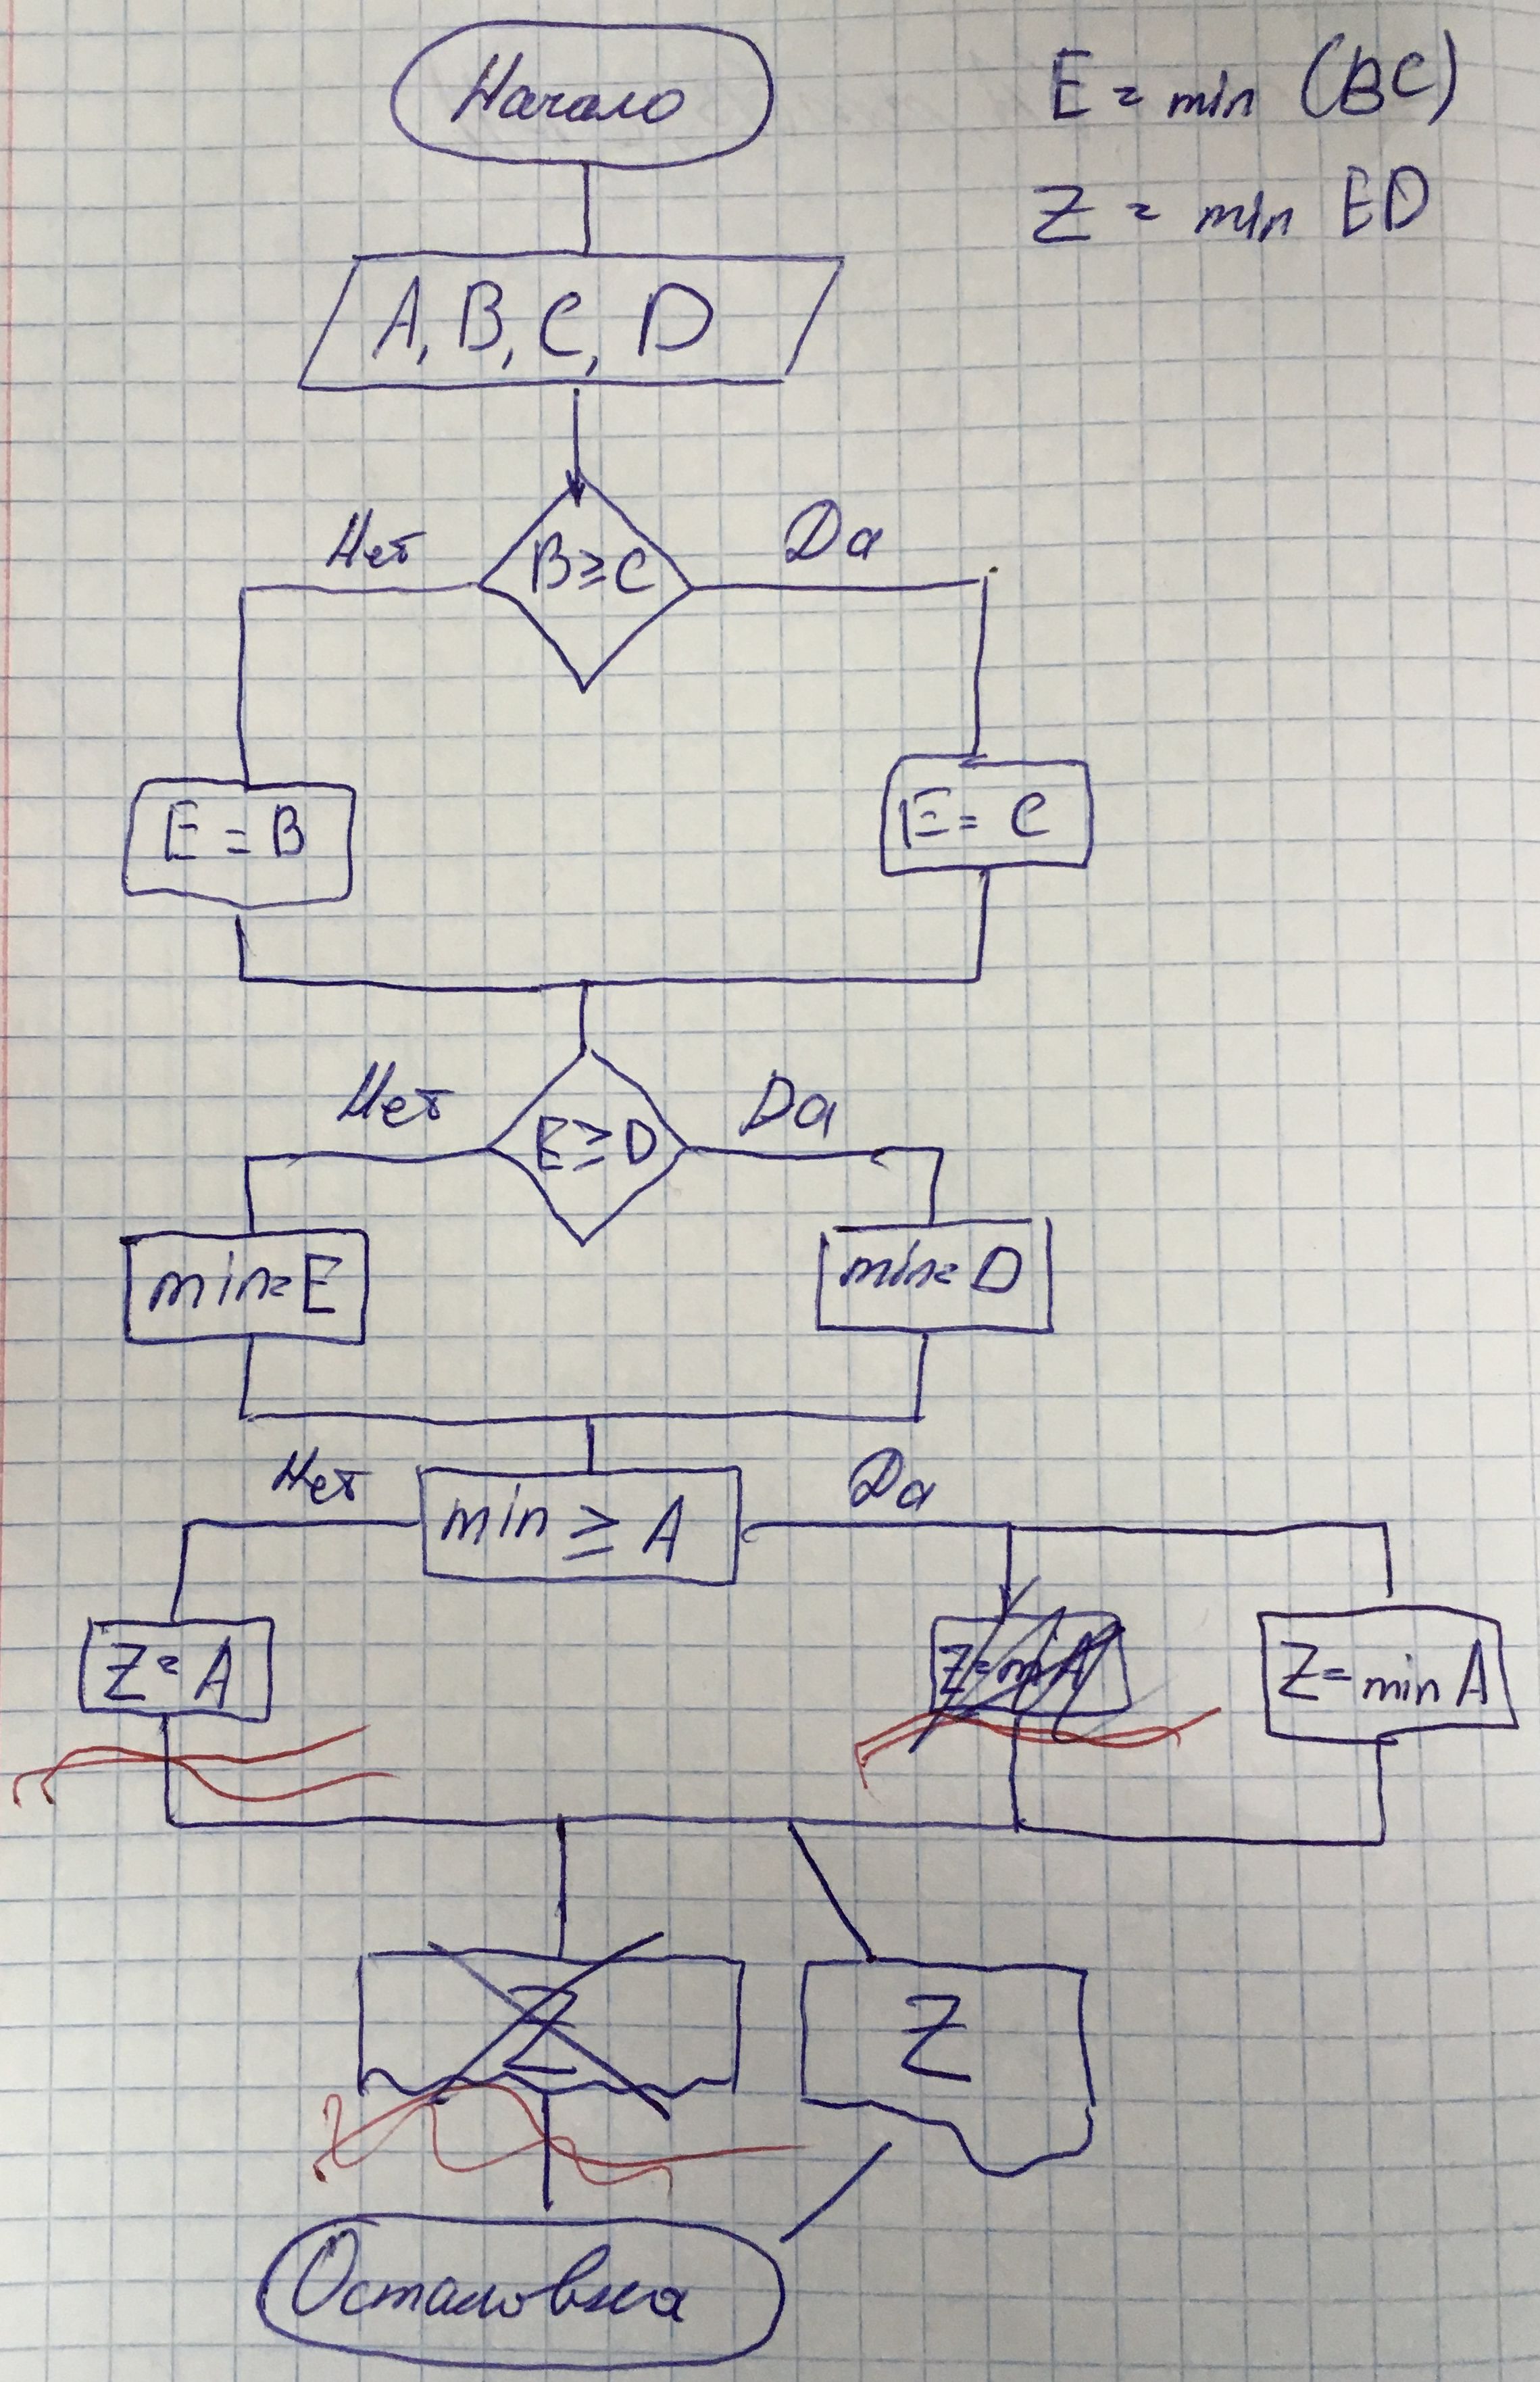 Начало
E = min (BC)
Z = min ED
A, B, C, D
Нет
B≥C
Да
E = B
E = C
Нет
E≥D
Да
min=E
min=D
Нет
min ≥ A
Да
Z=A
Z=minA
Z
Z
Остановка